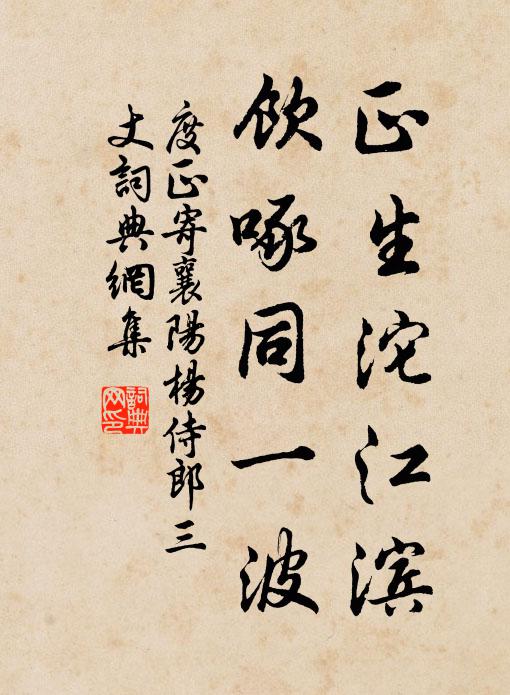 正生沱江滨
饮啄同一波
度正寄襄陽楊侍郎三
丈詞典網集
詞典
网印